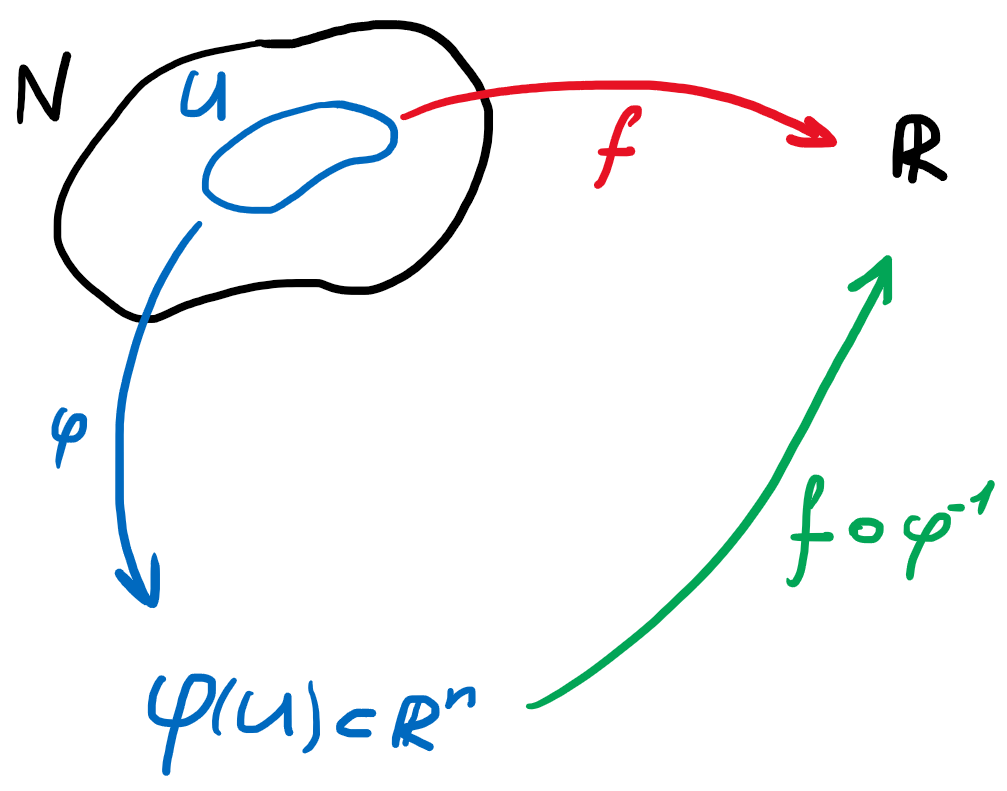 N
U
f
ℝ
φ
f∘φ⁻¹
φ(U)⊂ℝⁿ